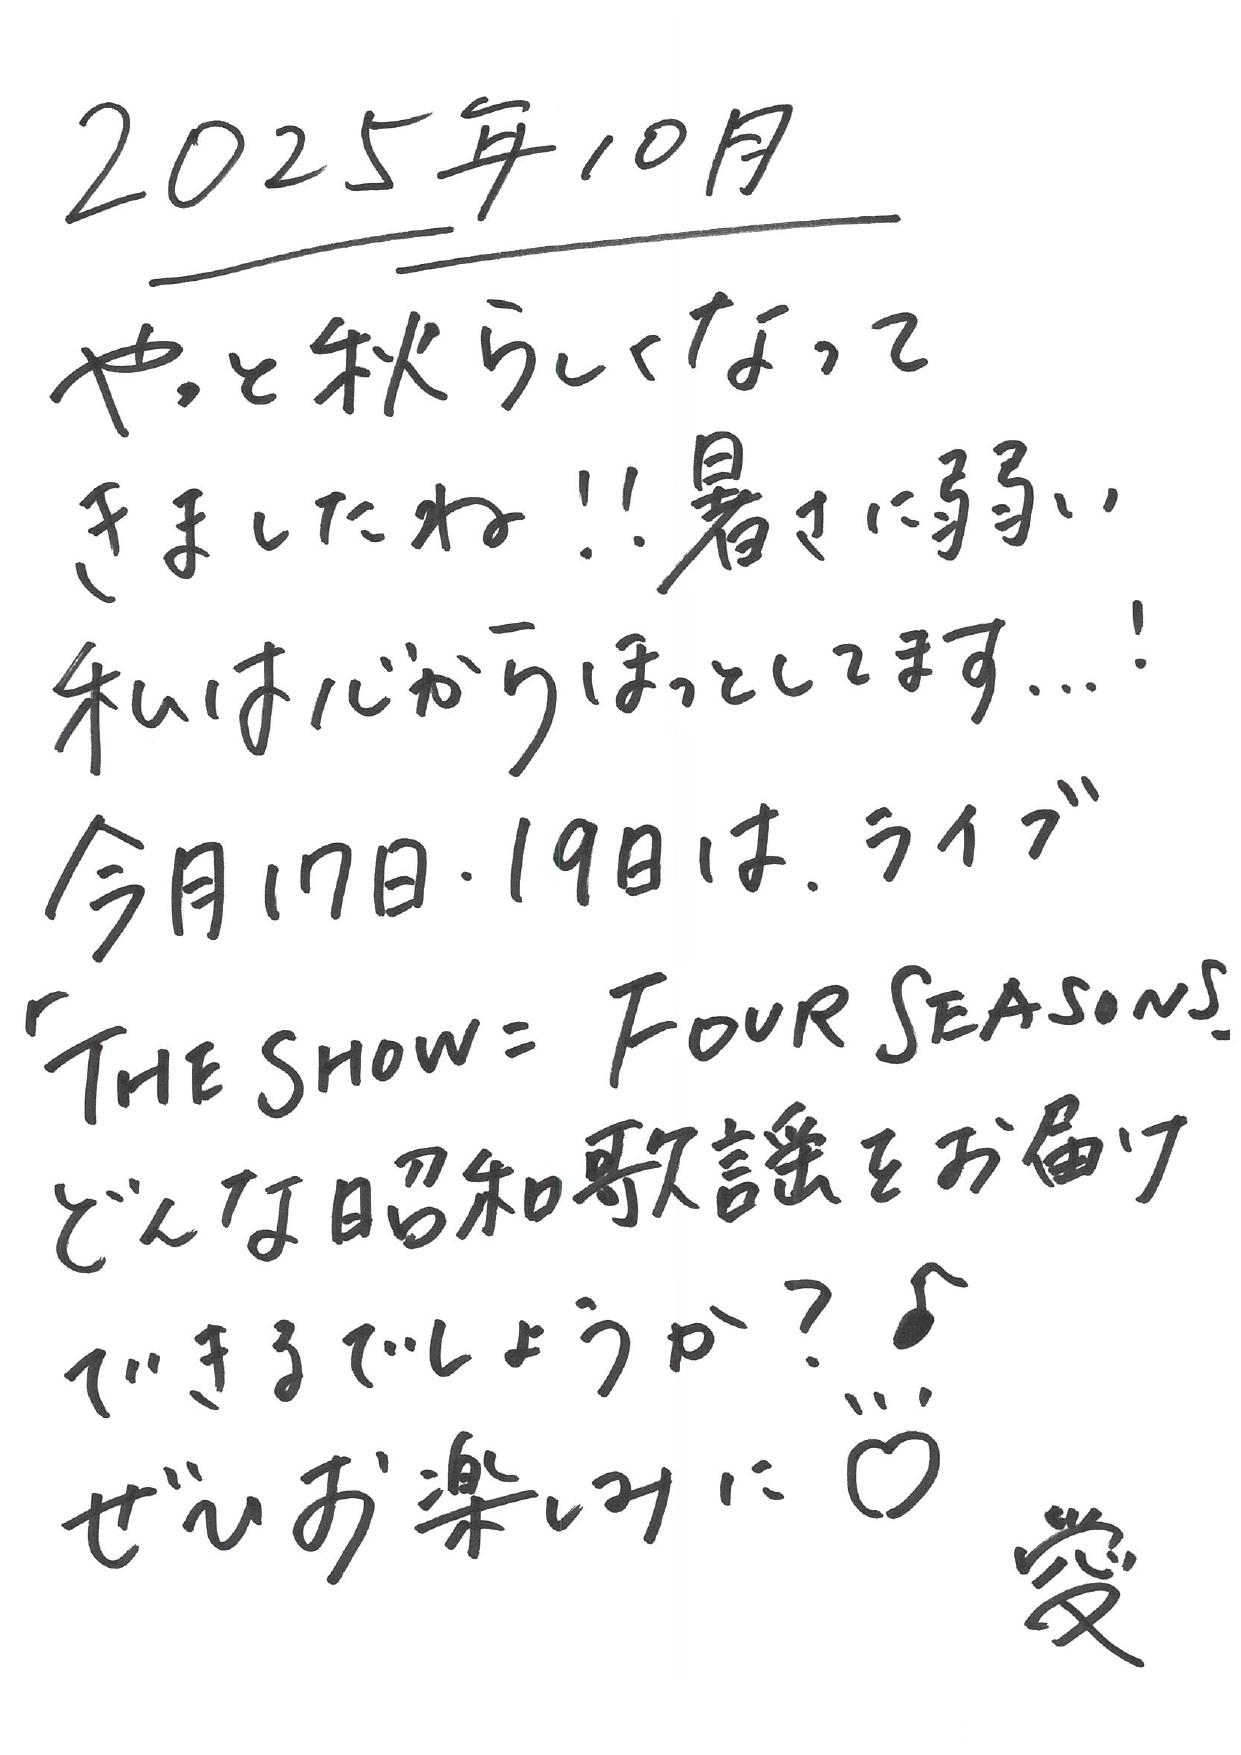 2025年10月
やっと秋らしくなって
きましたね!!暑さに弱い
私は心からほっとしてます...!
今月17日・19日は、ライブ
「THE SHOW= FOUR SEASONS」
どんな昭和歌謡をお届け
できるでしょうか?♪
ぜひお楽しみに♡
愛